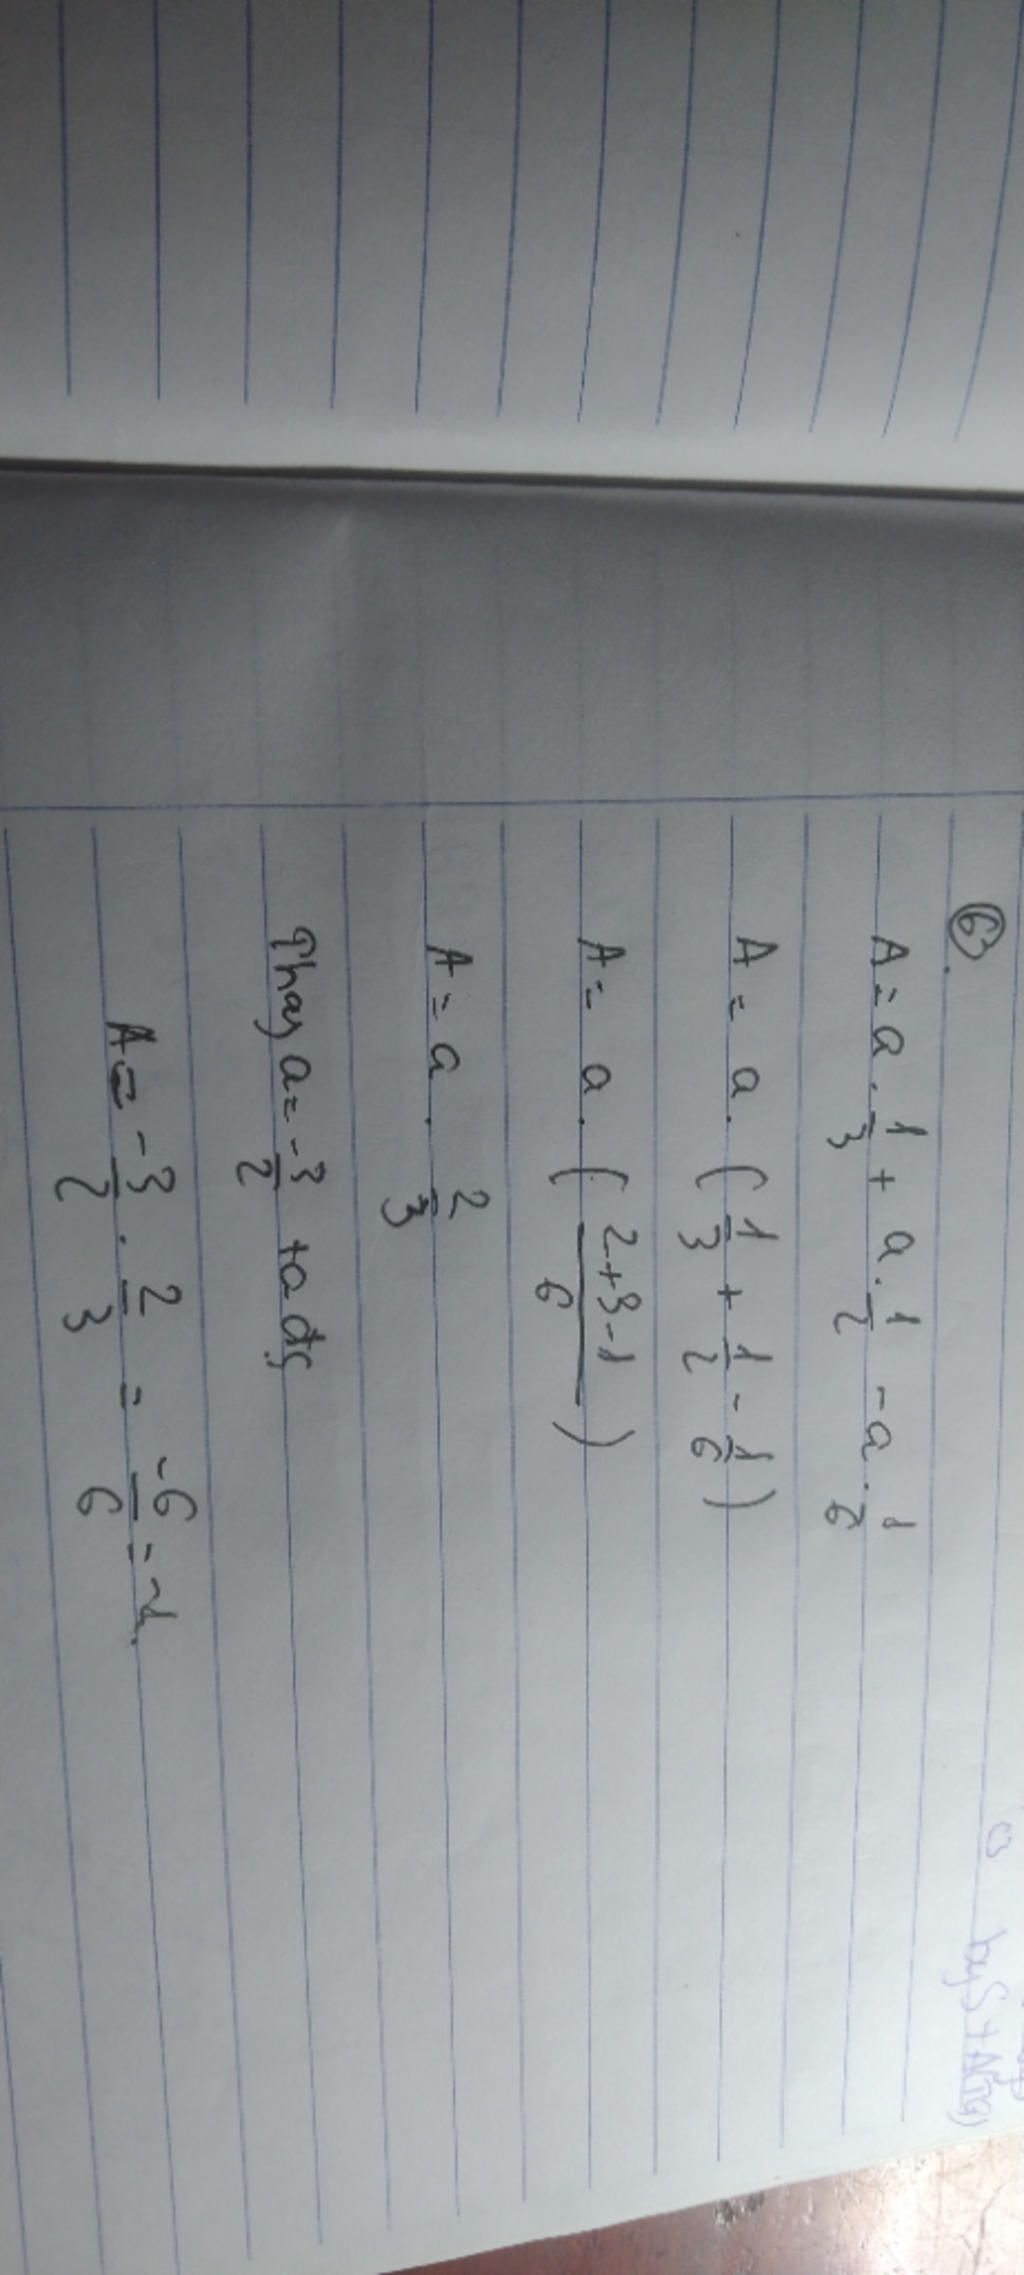 6.
A = a . 1/3 + a . 1/2 - a . 1/6
A = a . ( 1/3 + 1/2 - 1/6 )
A = a . ( (2+3-1)/6 )
A = a . 2/3
Thay a = -3/2 ta đc
A = -3/2 . 2/3 = -6/6 = -1.